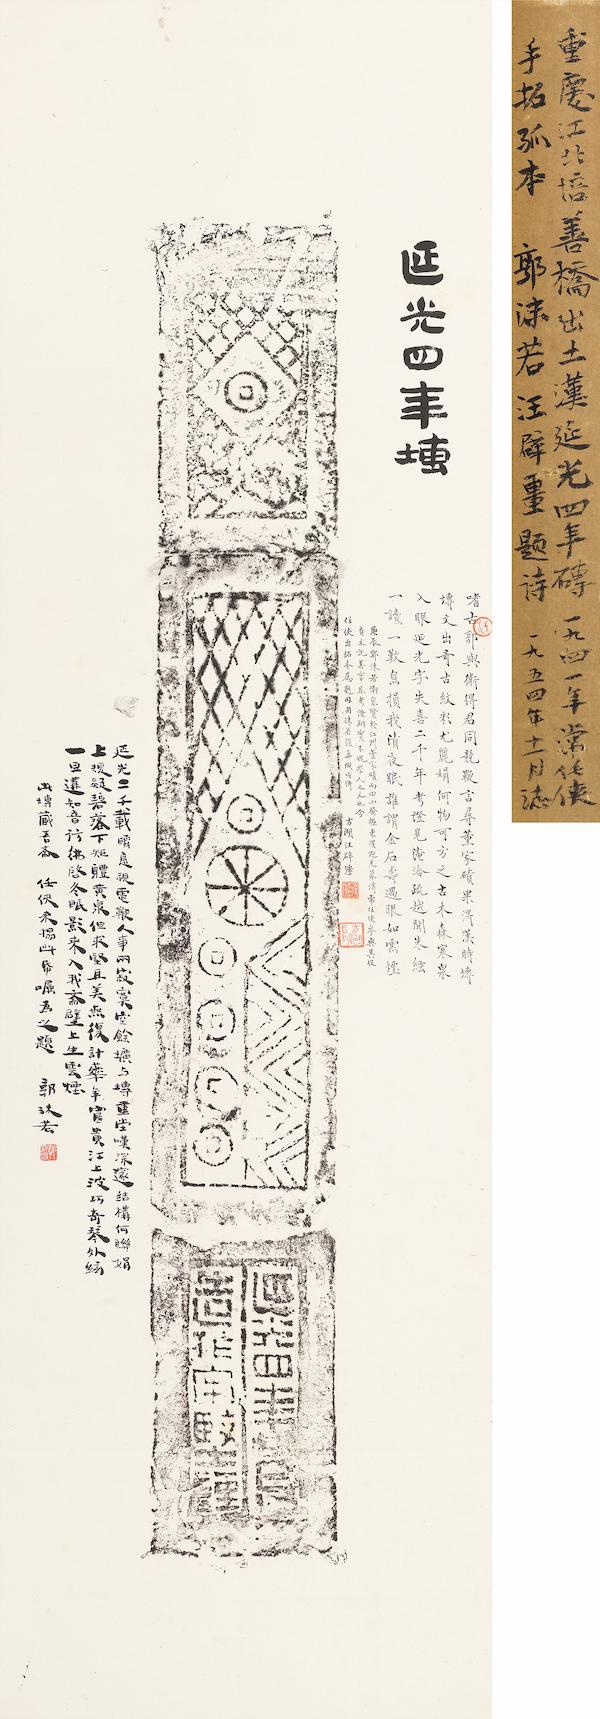 重慶江北培善橋出土漢延光四年磚 一九四一年常任俠
手拓孤本 郭沫若汪辟畺題詩 一九五四年十一月誌
延光四年塼
嗜古郭與衛得君同競鞭言尋董家磧果得漢時塼
塼文出奇古紋彩尤麗娟何物可方之古木森寒泉
入眼延光字失喜二千年考證見淹洽疏越聞朱絃
一讀一歎息損我清夜眠誰謂金石壽過眼如雲煙
任俠出拓本屬題
方湖汪辟畺
延光二千載瞬息視電鞭人事兩寂寞空餘壙与塼重堂嘆深邃結構何聯娟
上規疑碧落下矩體黄泉但求堅且美無復計華年富貴江上波巧奇琴外絃
一旦遘知音彷彿啓冬眠影來入我齋壁上生雲煙
此塼藏吾齋 任俠來搨此帋囑為之題 郭沫若
延光四年